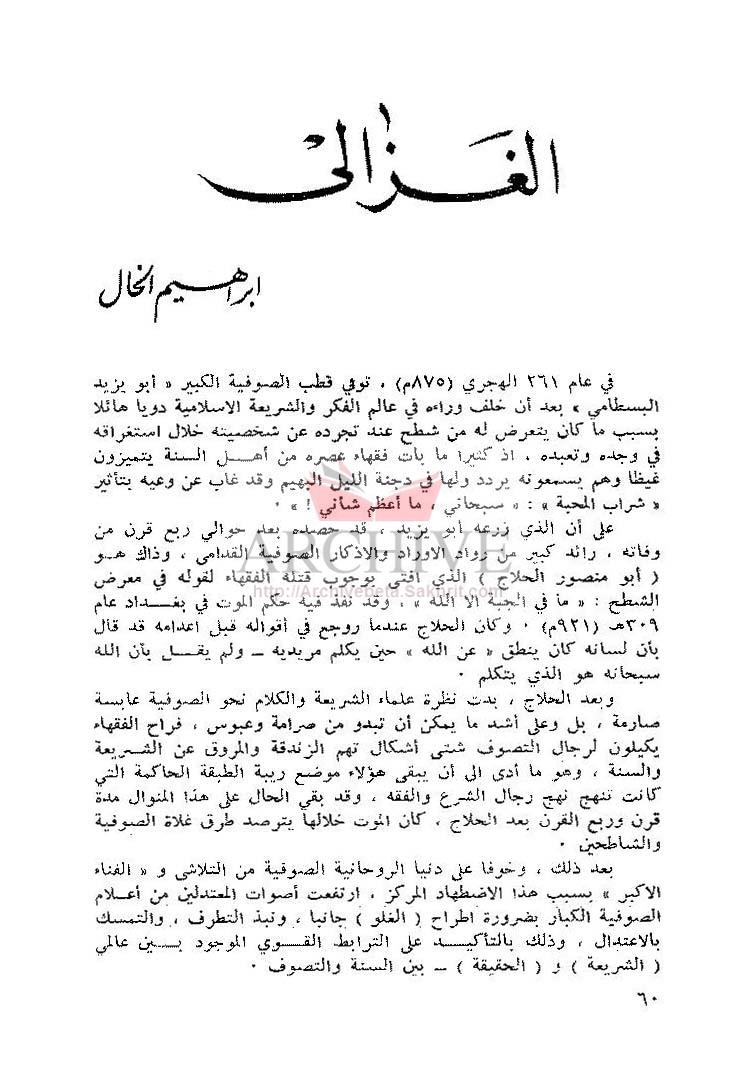 الغزالي
ابراهيم الخال
في عام ٢٦١ الهجري (٨٧٥م) ، توفي قطب الصوفية الكبير « أبو يزيد
البسطامي » بعد أن خلف وراءه في عالم الفكر والشريعة الاسلامية دويا هائلا
بسبب ما كان يتعرض له من شطح عند تجرده عن شخصيته خلال استغراقه
في وجده وتعبده ، اذ كثيرا ما بات فقهاء عصره من أهل السنة يتميزون
غيظا وهم يسمعونه يردد ولها في دجنة الليل البهيم وقد غاب عن وعيه بتأثير
« شراب المحبة » : « سبحاني ، ما أعظم شأني ! » ٠
على أن الذي زرعه أبو يزيد ، قد حصده بعد حوالي ربع قرن من
وفاته ، رائد كبير من رواد الاوراد والاذكار الصوفية القدامى ، وذاك هو
( أبو منصور الحلاج ) الذي أفتى بوجوب قتله الفقهاء لقوله في معرض
الشطح : « ما في الجبة الا الله » ، وقد نفذ فيه حكم الموت في بغداد عام
٣٠٩هـ (٩٢١م) ٠ وكان الحلاج عندما روجع في أقواله قبل اعدامه قد قال
بأن لسانه كان ينطق « عن الله » حين يكلم مريديه ــ ولم يقل بأن الله
سبحانه هو الذي يتكلم ٠
وبعد الحلاج ، بدت نظرة علماء الشريعة والكلام نحو الصوفية عابسة
صارمة ، بل وعلى أشد ما يمكن أن تبدو من صرامة وعبوس ، فراح الفقهاء
يكيلون لرجال التصوف شتى أشكال تهم الزندقة والمروق عن الشريعة
والسنة ، وهو ما أدى الى أن يبقى هؤلاء موضع ريبة الطبقة الحاكمة التي
كانت تنهج نهج رجال الشرع والفقه ، وقد بقي الحال على هذا المنوال مدة
قرن وربع القرن بعد الحلاج ، كان الموت خلالها يترصد طرق غلاة الصوفية
والشاطحين ٠
بعد ذلك ، وخوفا على دنيا الروحانية الصوفية من التلاشي و « الفناء
الاكبر » بسبب هذا الاضطهاد المركز ، ارتفعت أصوات المعتدلين من أعلام
الصوفية الكبار بضرورة اطراح ( الغلو ) جانبا ، ونبذ التطرف ، والتمسك
بالاعتدال ، وذلك بالتأكيد على الترابط القوي الموجود بين عالمي
( الشريعة ) و ( الحقيقة ) ــ بين السنة والتصوف ٠
٦٠
ARCHIVE
http://Archivebeta.Sakhrit.com